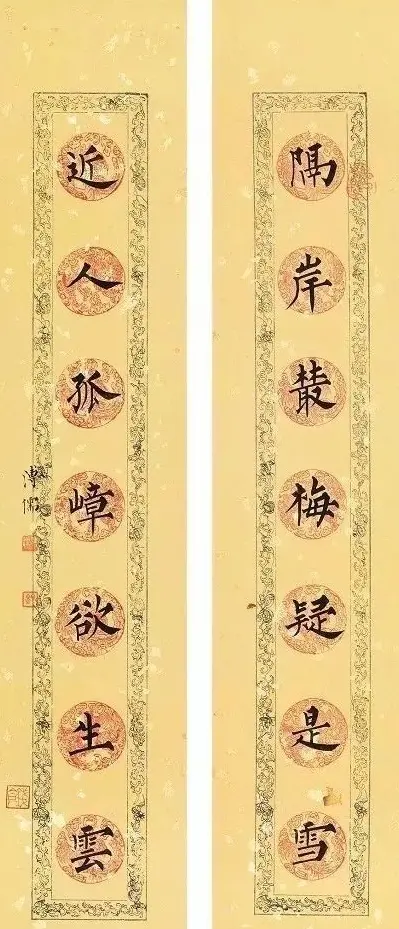 隔岸叢梅疑是雪
近人孤嶂欲生雲
溥儒